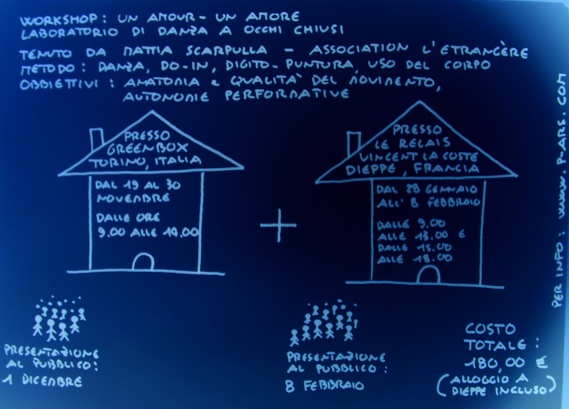 WORKSHOP: UN AMOUR - UN AMORE
LABORATORIO DI DANZA A OCCHI CHIUSI
TENUTO DA MATTIA SCARPULLA - ASSOCIATION L'ETRANGÈRE
METODO: DANZA, DO-IN, DIGITO-PUNTURA, USO DEL CORPO
OBBIETTIVI: ANATOMIA e QUALITA' DEL MOVIMENTO,
AUTONOMIE PERFORMATIVE
PRESSO
GREENBOX
TORINO, ITALIA
DAL 19 AL 30
NOVEMBRE
DALLE ORE
9.00 ALLE 14.00
+
PRESSO
LE RELAIS
VINCENT LA COSTE
DIEPPE, FRANCIA
DAL 28 GENNAIO
ALL' 8 FEBBRAIO
DALLE 9.00
ALLE 13.00 E
DALLE 15.00
ALLE 18.00
PER INFO: www.P-ARS.COM
PRESENTAZIONE
AL PUBBLICO:
1 DICEMBRE
PRESENTAZIONE
AL PUBBLICO:
8 FEBBRAIO
COSTO
TOTALE:
180,00 €
(ALLOGGIO A
DIEPPE INCLUSO)